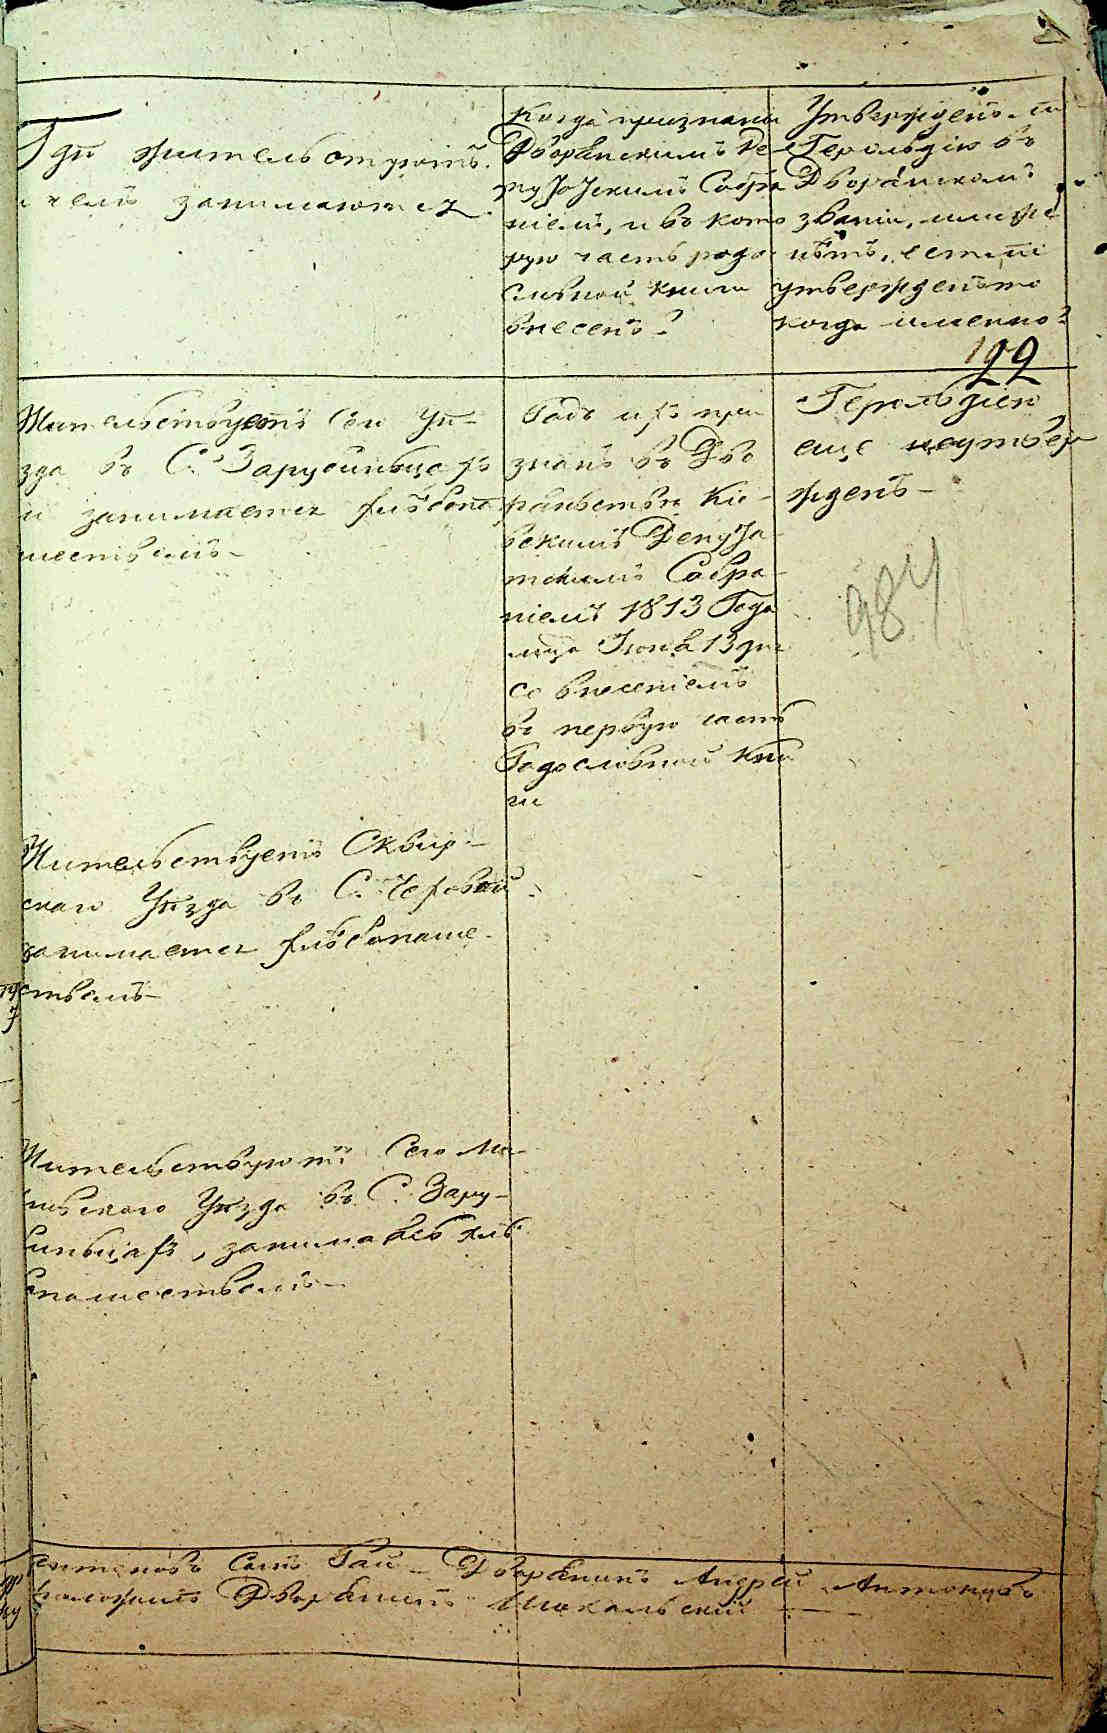 Где жительствуютъ
и чемъ занимаются.
Когда признаны
Дворянскимъ Де-
путатскимъ Собра
ніемъ, и въ кото
рую часть родо-
словной книги
внесенъ?
Утвержденъ ли
Герольдіею въ
Дворянскомъ
званіи, или же
нѣтъ, естли
утвержденъ то
когда именно?
122
Жительствуетъ сего Уѣ-
зда въ С. Зарубинцахъ
и занимается хлѣбопа
шествомъ
Родъ ихъ при
знанъ въ Дво
рянствѣ Кіе-
вскимъ Депута-
тскимъ Собра-
ніемъ 1813 Года
мца Іюня 13 дня
со внесеніемъ
въ первую часть
Родословной Кни
ги
Герольдіею
еще неутвер
жденъ
984
Жительствуетъ Сквир-
скаго Уѣзда въ С.
занимается хлѣбопаше-
ствомъ
Жительствуютъ Сего Ма
хновского Уѣзда въ С. Зару-
бинцахъ, занимаясь хлѣ
бопашествомъ
Дворянинъ Андрей Антоновъ
Дворянинъ